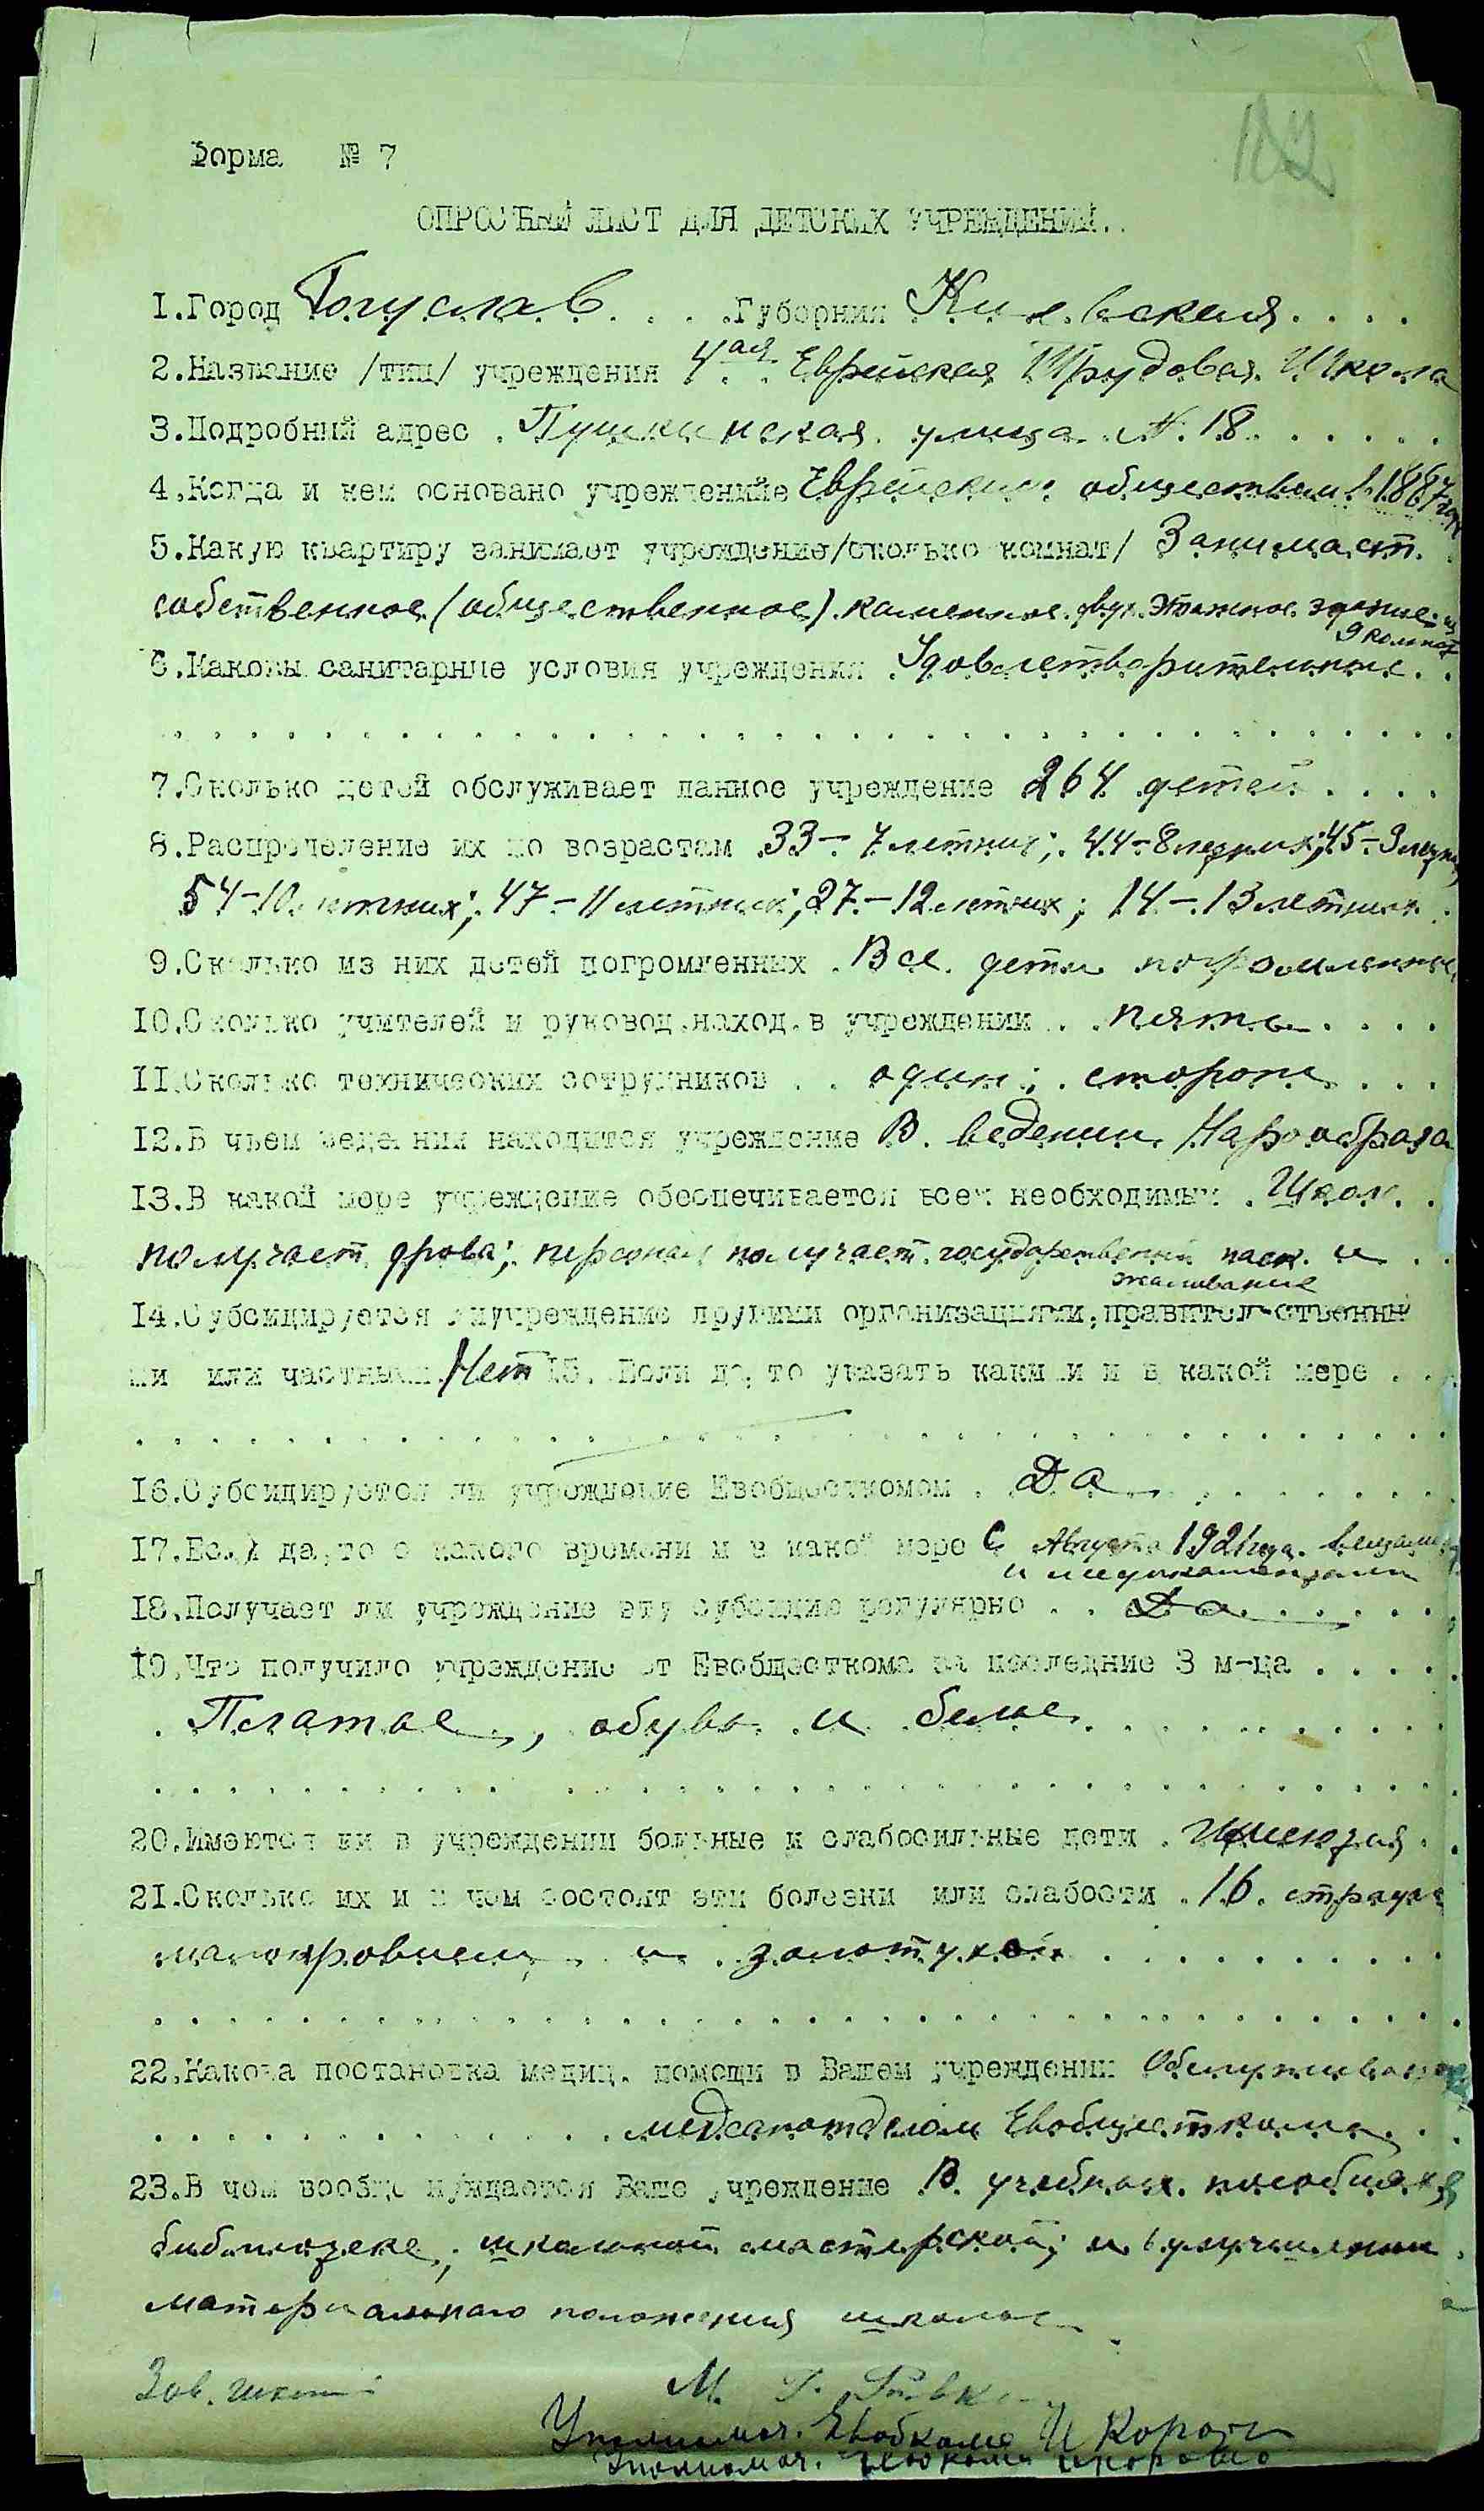 182
Форма № 7
ОПРОСНЫЙ ЛИСТ ДЛЯ ДЕТСКИХ УЧРЕЖДЕНИЙ.
1.Город Богуслав . . . .Губерния Киевская . . . .
2.Название /тип/ учреждения 4ая Еврейская Трудовая Школа
3.Подробный адрес . Пушкинская улица № 18 . . . . . .
4.Когда и кем основано учреждение Еврейским обществом в 1887 году
5.Какую квартиру занимает учреждение/сколько комнат/ Занимает
собственное (общественное) каменное двух этажное здание из
9 комнат
6.Каковы санитарные условия учреждения . Удовлетворительные . .
7.Сколько детей обслуживает данное учреждение 264 детей . . . .
8.Распределение их по возрастам .33 – 7 летних; 44 – 8 летних; 45 – 9 летних
54 – 10 летних; 47 – 11 летних; 27 – 12 летних; 14 – 13 летних .
9.Сколько из них детей погромленных . Все дети погромленные
10.Сколько учителей и руковод.наход.в учреждении . . пять . . . .
11.Сколько технических сотрудников . . один; сторож . . .
12.В чьем ведении находится учреждение В ведении Наробраза
13.В какой мере учреждение обеспечивается всем необходимым . Школа .
получает дрова; персонал получает государственный паек и
жалование
14.Субсидируется ли учреждение другими организациями,правительственны
ми или частными. Нет 15. Если да, то указать какими и в какой мере . .
16.Субсидируется ли учреждение Евобщесткомом . Да . . . . . . . .
17.Если да,то с какого времени и в какой мере С Августа 1921 года вещами
и медикаментами
18.Получает ли учреждение эту субсидию регулярно . . Да . . . . .
19.Что получило учреждение от Евобщесткома за последние 3 м-ца . . . . .
. Платье, обувь и белье . . . . . . . . . .
20.Имеются ли в учреждении больные и слабосильные дети . Имеются .
21.Сколько их и в чем состоят эти болезни или слабости . 16 страдает
малокровием и золотухой . . . . . . . . . .
22.Какова постановка медиц. помощи в Вашем учреждении Обслуживание
. . . . . . . . . . . . . медсанотделом Евобщесткома . .
23.В чем вообще нуждается Ваше учреждение В учебных пособиях,
библиотеке, школьной мастерской; и в улучшении
материального положения школы
Зав. школой М.
Уполномоч. Евобкома И
Уполномоч. Евобкома